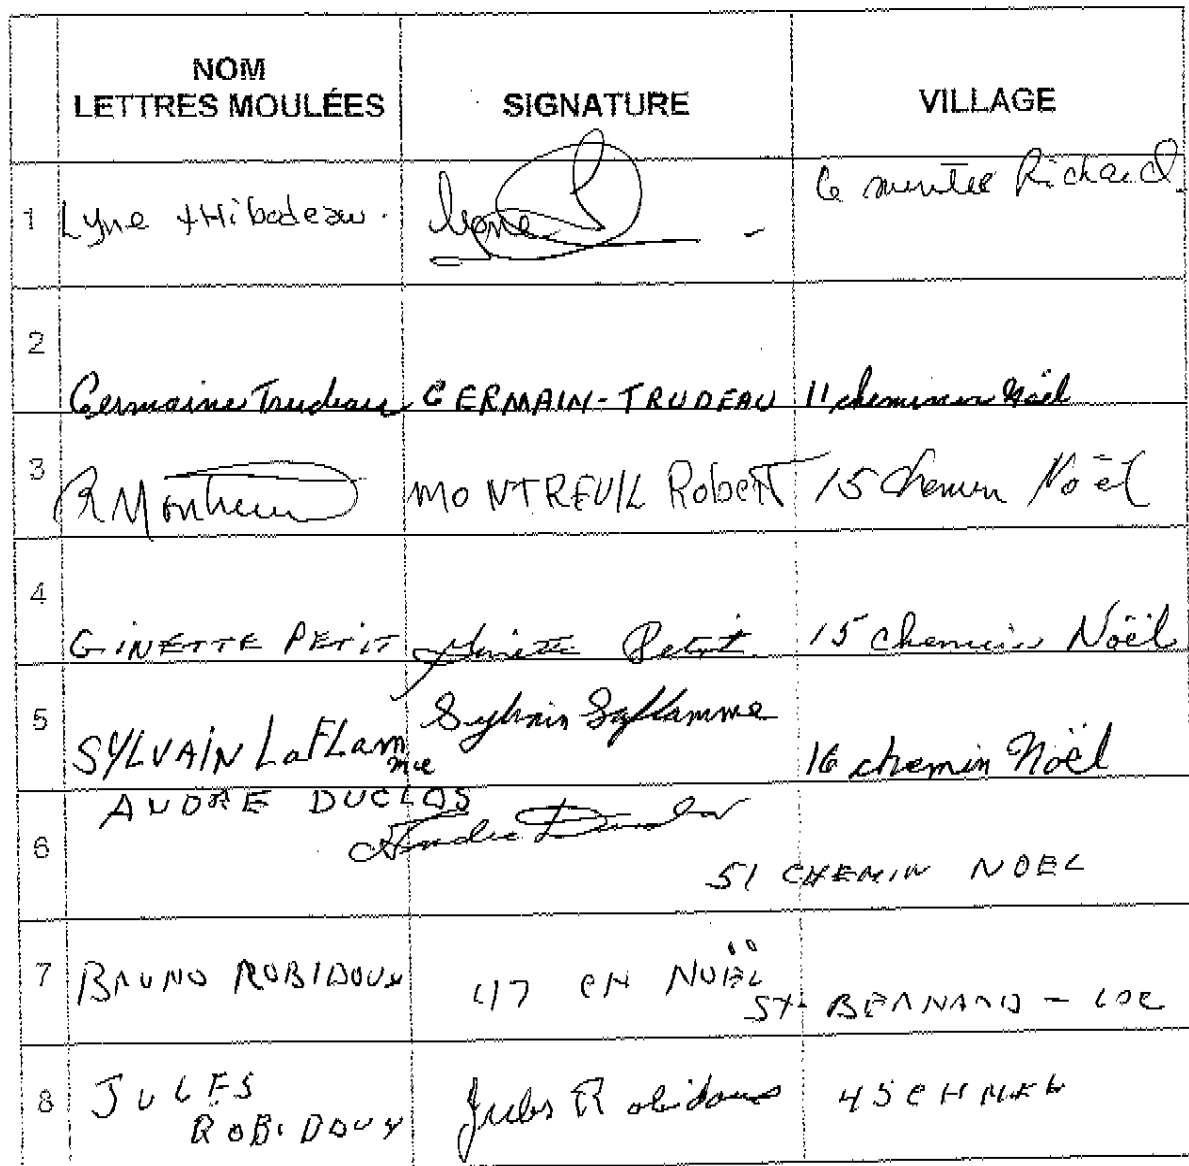 NOM
LETTRES MOULÉES
SIGNATURE
VILLAGE
1 Lyne tHibodeau. Lyne 6 montée Richard.
2 Germaine Trudeau GERMAIN-TRUDEAU 11 chemin Noël
3 R Montreuil MONTREUIL Robert 15 chemin Noël
4 GINETTE PETIT Ginette Petit 15 chemin Noël
5 SYLVAIN LaFLamme Sylvain Laflamme 16 chemin Noël
6 ANDRE DUCLOS Andre Duclos 51 CHEMIN NOEL
7 BRUNO ROBIDOUX 47 CH NOËL ST-BERNARD - LAC
8 JULES Jules Robidoux 45 CH
ROBIDOUX